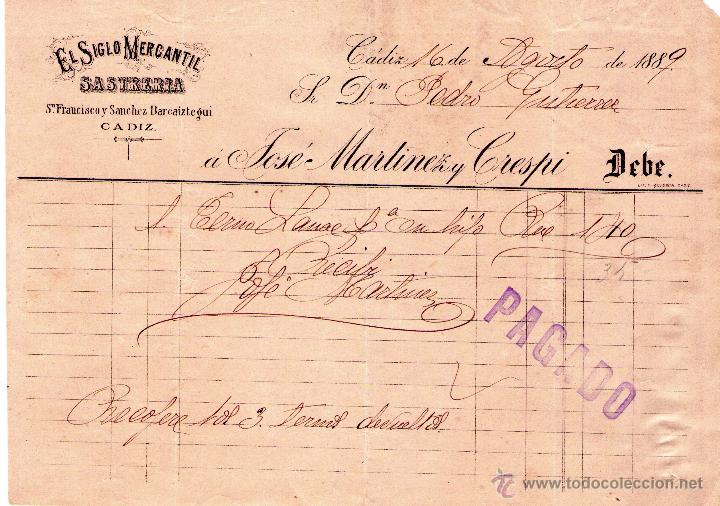 EL SIGLO MERCANTIL
SASTRERIA
Sn. Francisco y Sanchez Barcaiztegui
CADIZ.
Cádiz 16 de Agosto de 1889
Sr. Dn. Pedro Gutierrez
á José Martinez y Crespi Debe.
1. Terno Lana su hijo 140
Recibí
José Martinez
PAGADO
Recojere los 3 ternos devueltos.
todocoleccion.net